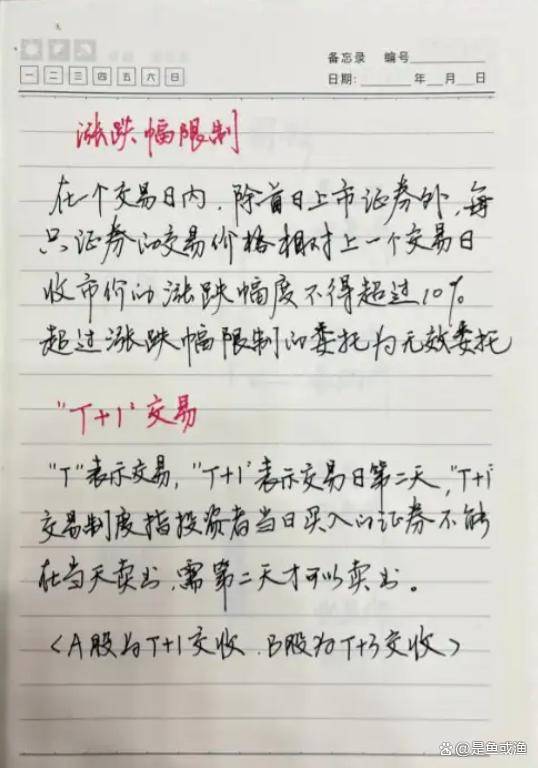 备忘录 编号
一 二 三 四 五 六 日
日期: 年 月 日
涨跌幅限制
在一个交易日内,除首日上市证券外,每
只证券的交易价格相对上一个交易日
收市价的涨跌幅度不得超过10%
超过涨跌幅限制的委托为无效委托
"T+1"交易
"T"表示交易,"T+1"表示交易日第二天,"T+1"
交易制度指投资者当日买入的证券不能
在当天卖出,需第二天才可以卖出。
<A股为T+1交收、B股为T+3交收>
@是鱼或渔